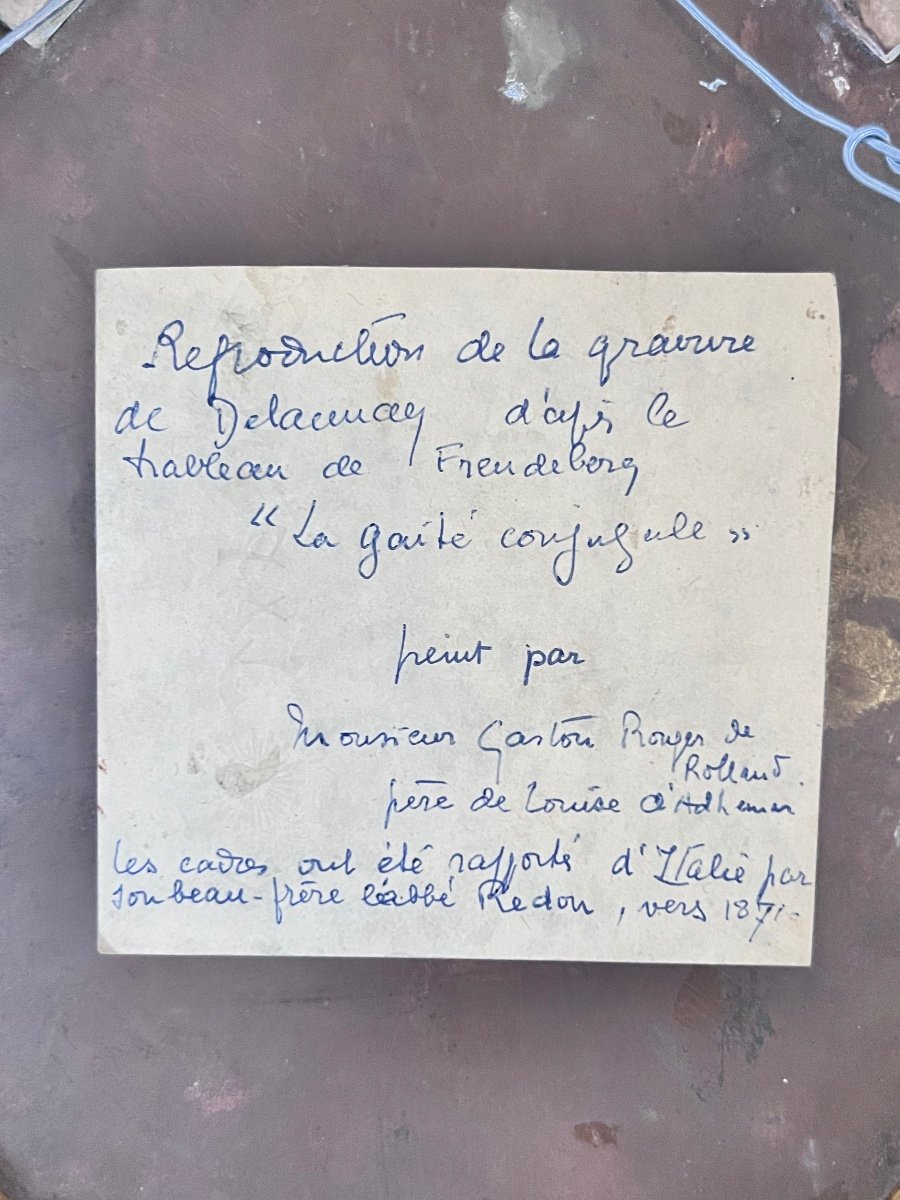 Reproduction de la gravure
de Delaunay d'après le
tableau de Freudeberg
“ La gaité conjugale »
peint par
Monsieur Gaston Roger de
Rolland.
père de Louise d'Adhemar
les cadres ont été rapportés d'Italie par
son beau-frère l'abbé Redon, vers 187